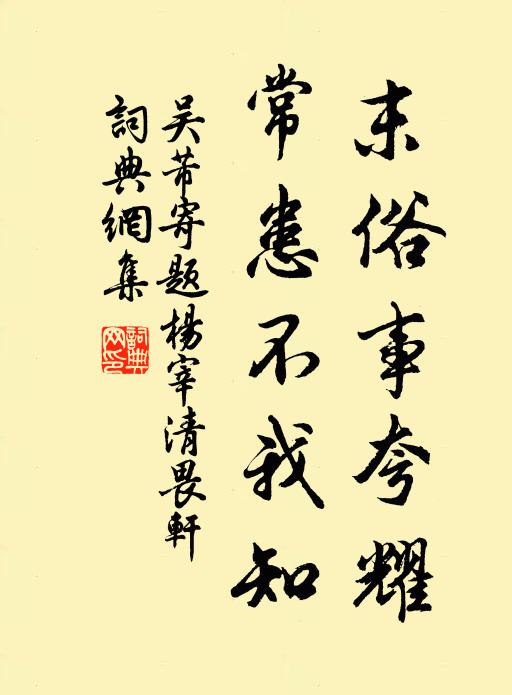 末俗事夸耀
常患不我知
吴芾寄题楊宰清畏軒
詞典網集
詞典網印